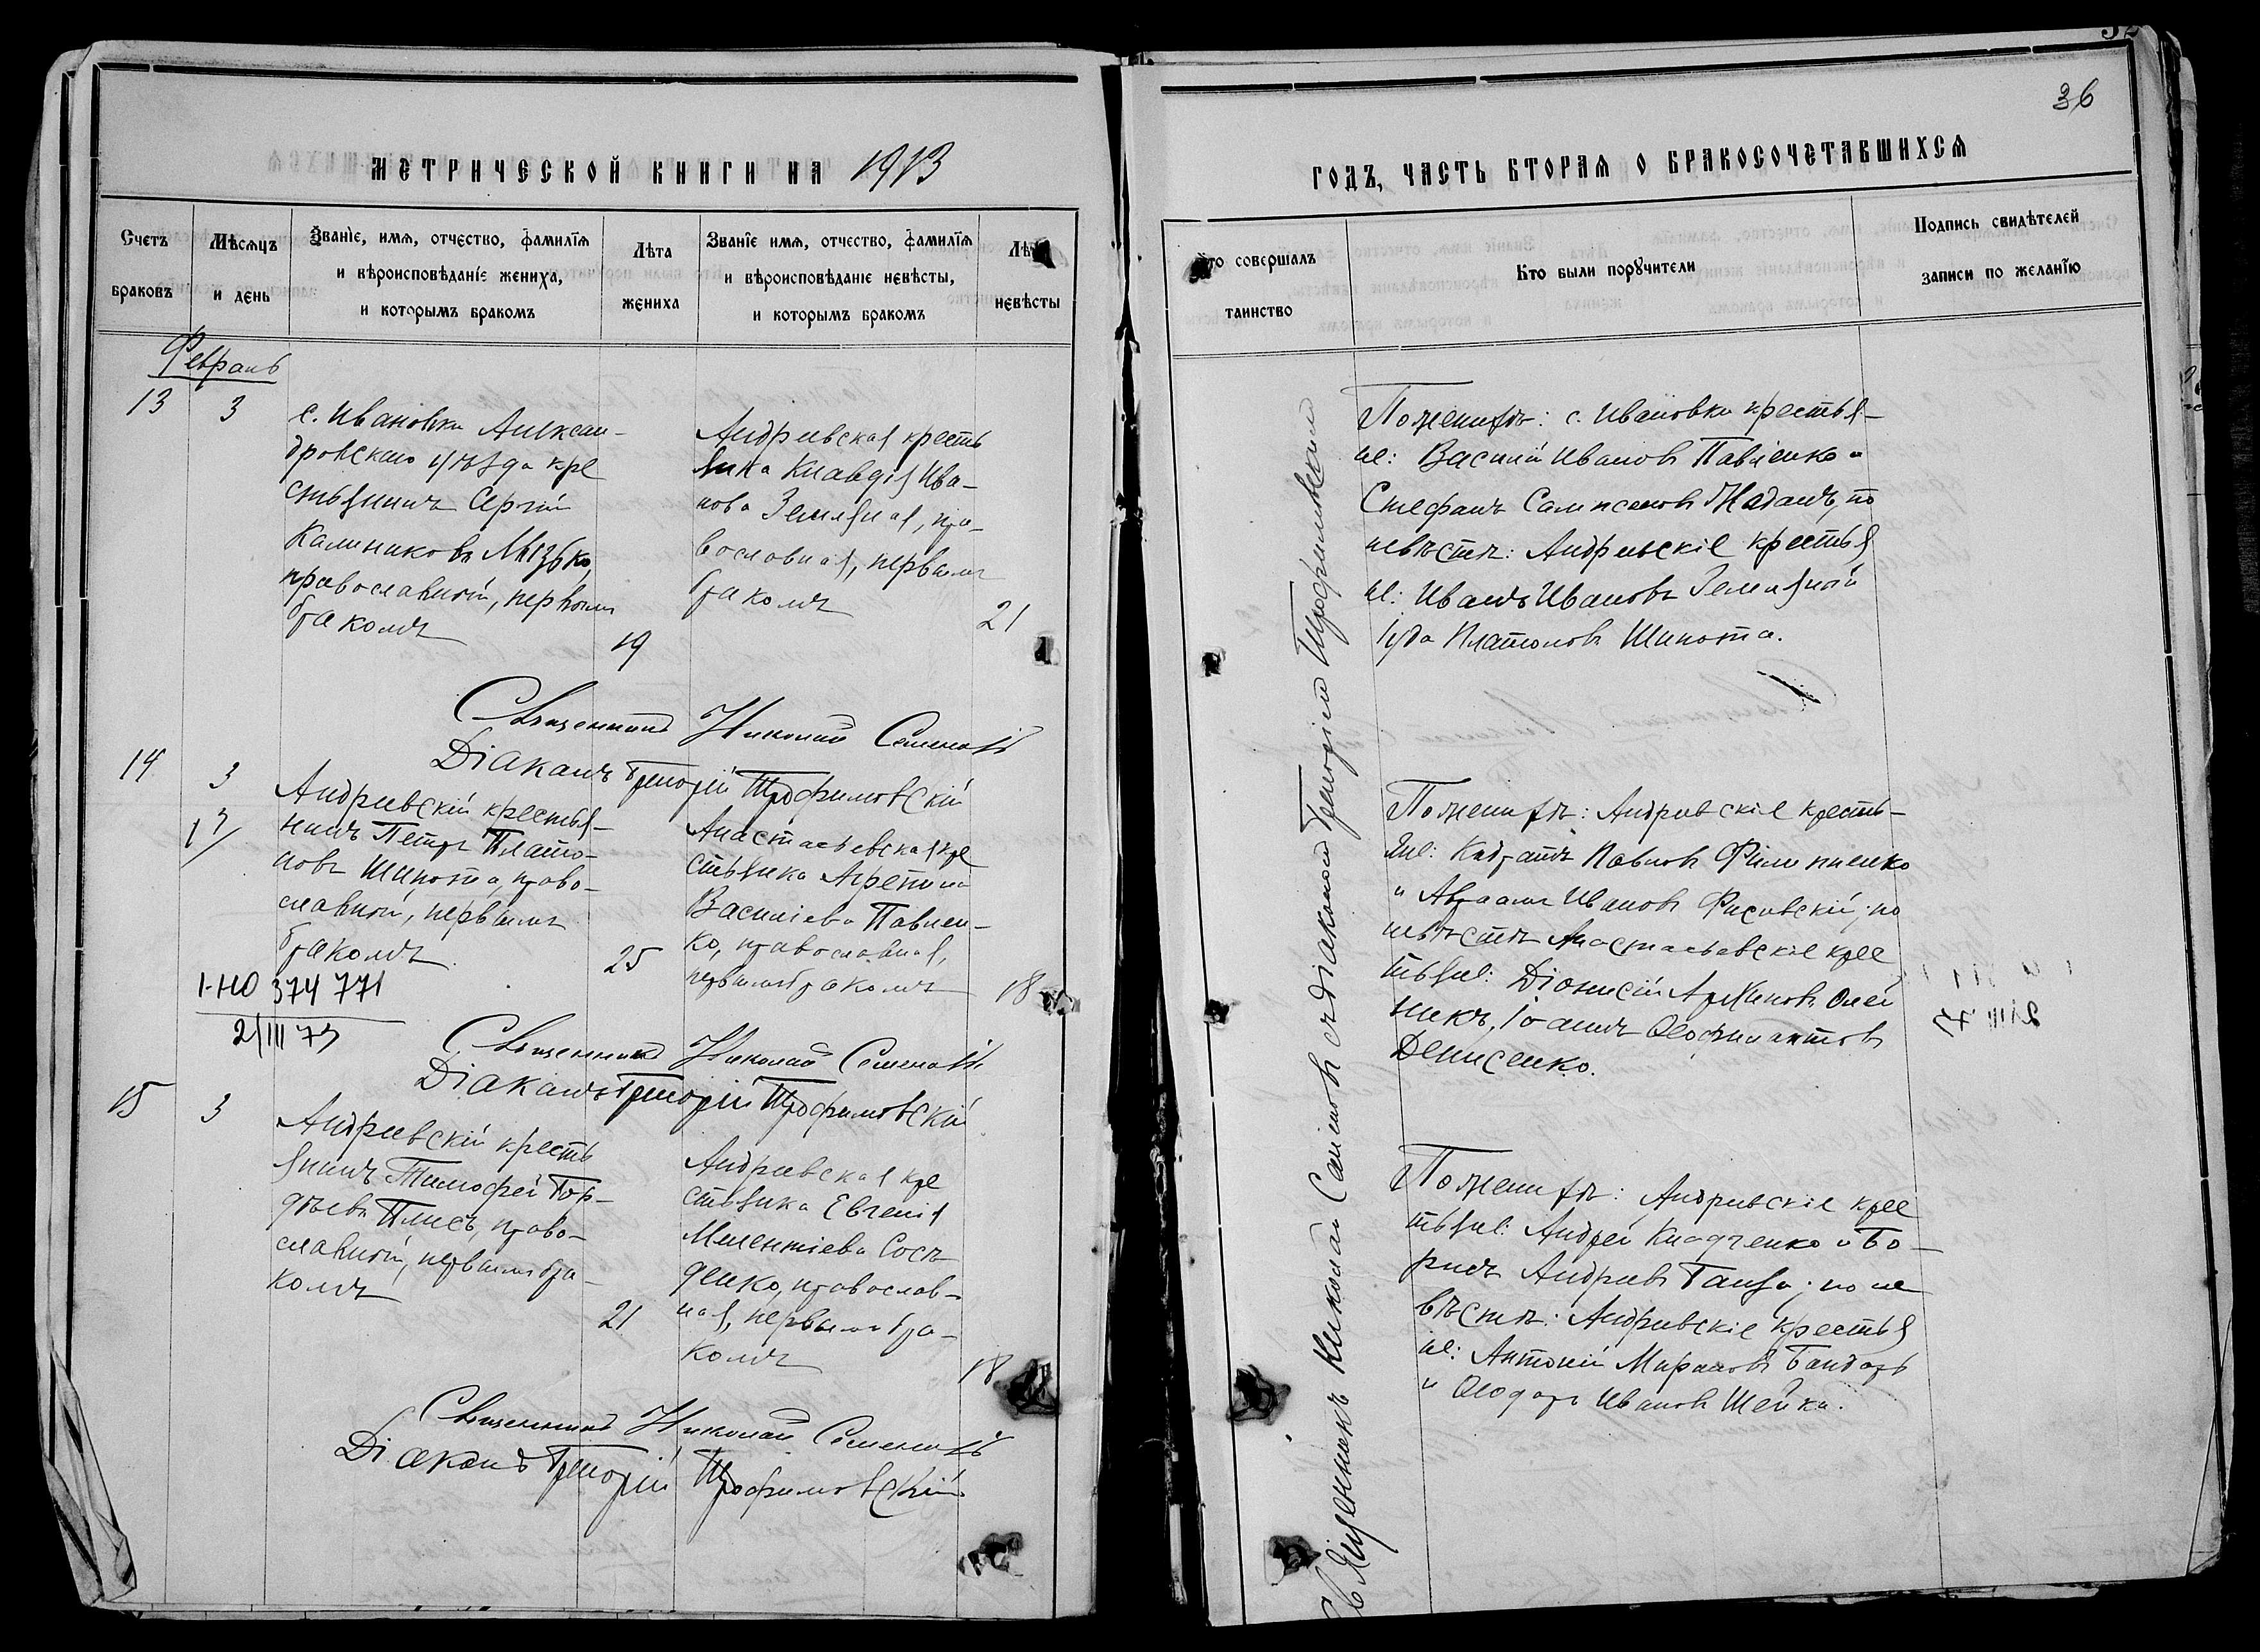 МЕТРИЧЕСКОЙ КНИГИ НА 1913
Счетъ браковъ
Мѣсяцъ и день
Званїе, имя, отчество, фамилїя
и вѣроисповѣданїе жениха,
и которымъ бракомъ
Лѣта
жениха
Званїе имя, отчество, фамилїя
и вѣроисповѣданїе невѣсты,
и которымъ бракомъ
невѣсты
Февраль
13
3
с. Ивановки Алексан-
дровскаго уѣзда кре
стьянинъ Сергій
Калиниковъ
православный, первымъ
бракомъ
19
Андреевская кресть
янка Клавдія Ива-
нова Земляная, пра-
вославная, первымъ
бракомъ
21
Священникъ Николай Семеновъ
Діаконъ Григорій Трофимовскій
14
3
Андреевскій крестья-
нинъ Петръ Плато-
новъ Шипота, право-
славный, первымъ
бракомъ
25
I-НО 374771
2/III 73
Анастасьевская кре
стьянка Агрепина
Василіева Павлен-
ко, православная,
первымъ бракомъ
18
Священникъ Николай Семеновъ
Діаконъ Григорій Трофимовскій
15
3
Андреевскій кресть
янинъ Тимофей Гор-
дѣевъ Плисъ, право-
славный, первымъ бра-
комъ
21
Андреевская кре
стьянка Евгенія
Мелентіева Сосѣ-
денко, православ-
ная, первымъ бра-
комъ
18
Священникъ Николай Семеновъ
Діаконъ Григорій Трофимовскій
36
ГОДЪ, ЧАСТЬ ВТОРАЯ О БРАКОСОЧЕТАВШИХСЯ
Кто совершалъ
таинство
Кто были порꙋчители
Подпись свидѣтелей
записи по желанїю
Священникъ Николай Семеновъ съ діакономъ Григоріемъ Трофимовскимъ
По женихѣ: с. Ивановки крестья-
не: Василій Ивановъ Павленко и
Стефанъ Сампсоновъ Жаданъ, по
невѣстѣ: Андреевскіе крестья
не: Иванъ Ивановъ Земляной
Іуда Платоновъ Шипота.
По женихѣ: Андреевскіе кресть-
яне: Кодратъ Павловъ Филипненко
и Авраамъ Ивановъ; по
невѣстѣ Анастасьевскіе крес
тьяне: Діонисій Архиповъ Олей
никъ, Іоаннъ Ѳеофилактовъ
Денисенко.
По женихѣ: Андреевскіе крес
тьяне: Андрей Кладченко и Бо-
рисъ Андреевъ Ганза; по не
вѣстѣ: Андреевскіе крестья
не: Антоній Мироновъ Бандаръ
и Ѳеодоръ Ивановъ Шейка.